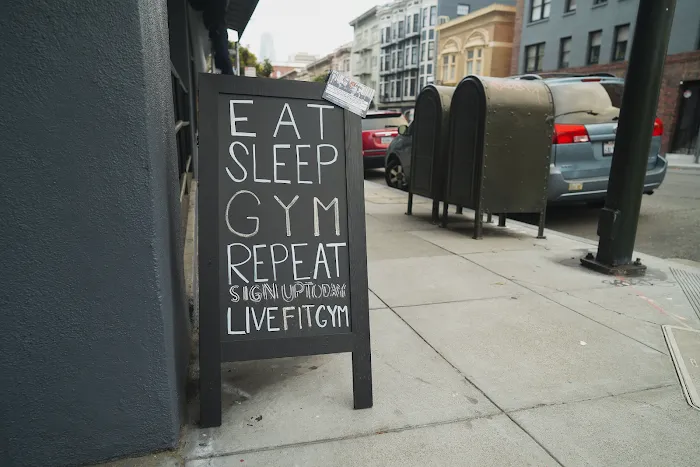 EAT
SLEEP
GYM
REPEAT
SIGN UP TODAY
LIVEFITGYM